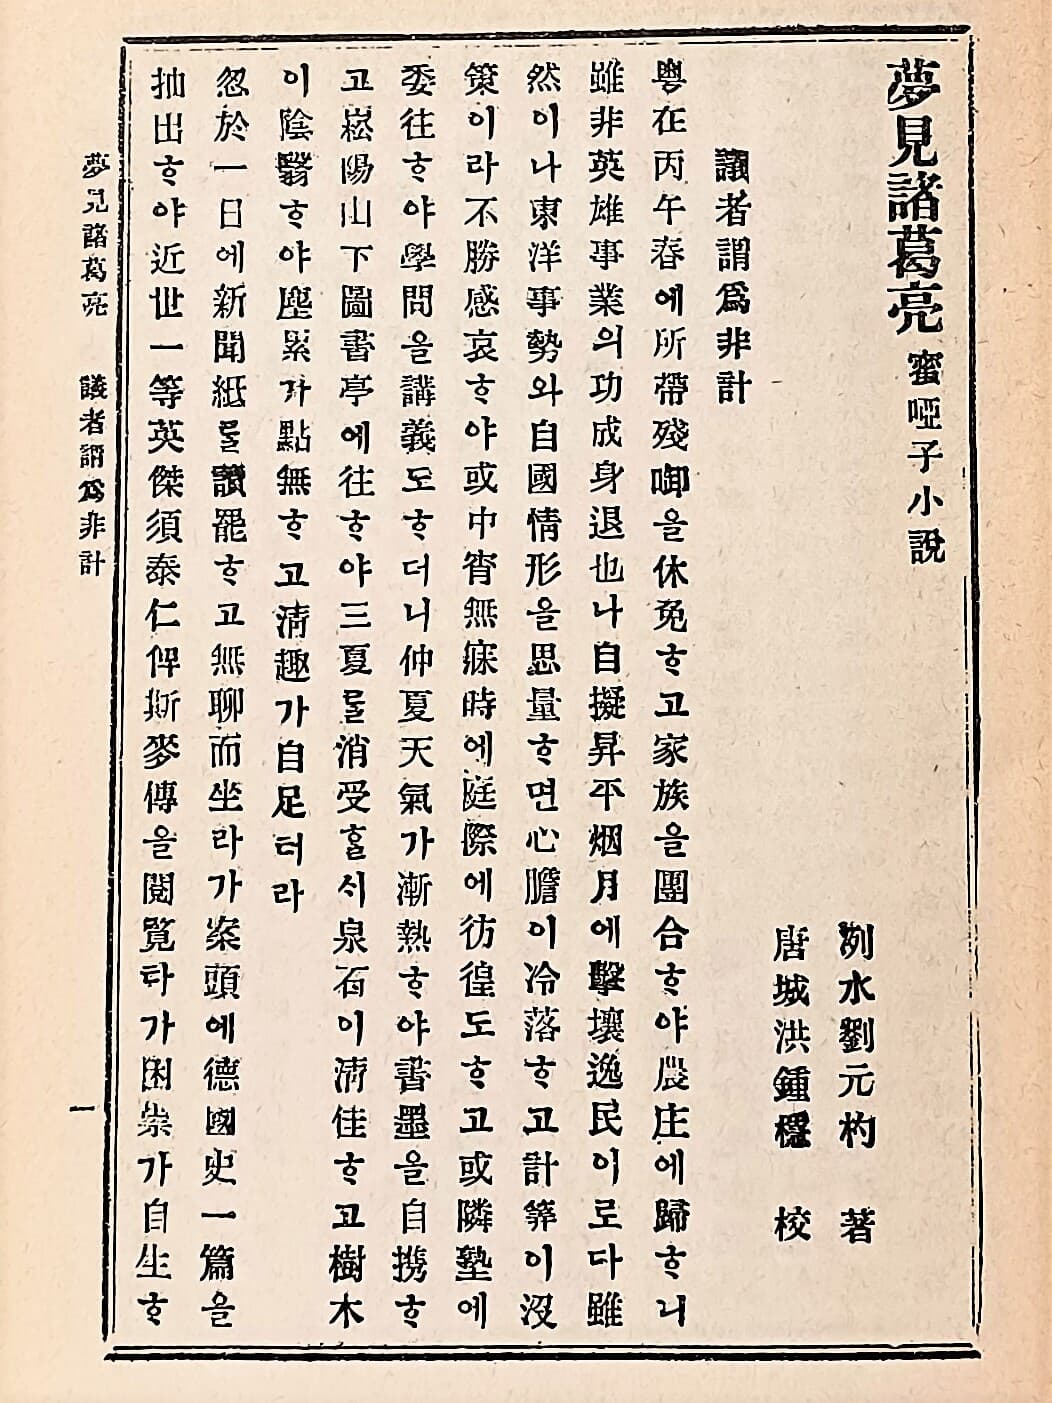 夢見諸葛亮 蜜啞子小說
洌水劉元杓 著
唐城洪鍾檼 校
議者謂爲非計
粤在丙午春에所帶殘啣을休免ᄒᆞ고家族을團合ᄒᆞ야農庄에歸ᄒᆞ니
雖非英雄事業의功成身退也나自擬昇平烟月에擊壤逸民이로다雖
然이나東洋事勢와自國情形을思量ᄒᆞ면心膽이冷落ᄒᆞ고計筭이沒
策이라不勝感哀ᄒᆞ야或中宵無寐時에庭際에彷徨도ᄒᆞ고或隣塾에
委往ᄒᆞ야學問을講義도ᄒᆞ더니仲夏天氣가漸熱ᄒᆞ야書墨을自携ᄒᆞ
고崧陽山下圖書亭에往ᄒᆞ야三夏ᄅᆞᆯ消受ᄒᆞᆯᄉᆡ泉石이淸佳ᄒᆞ고樹木
이陰翳ᄒᆞ야塵累가點無ᄒᆞ고淸趣가自足터라
忽於一日에新聞紙ᄅᆞᆯ讀罷ᄒᆞ고無聊而坐라가案頭에德國史一篇을
抽出ᄒᆞ야近世一等英傑須泰仁俾斯麥傳을閱覽타가困祟가自生ᄒᆞ
夢見諸葛亮 議者謂爲非計
一